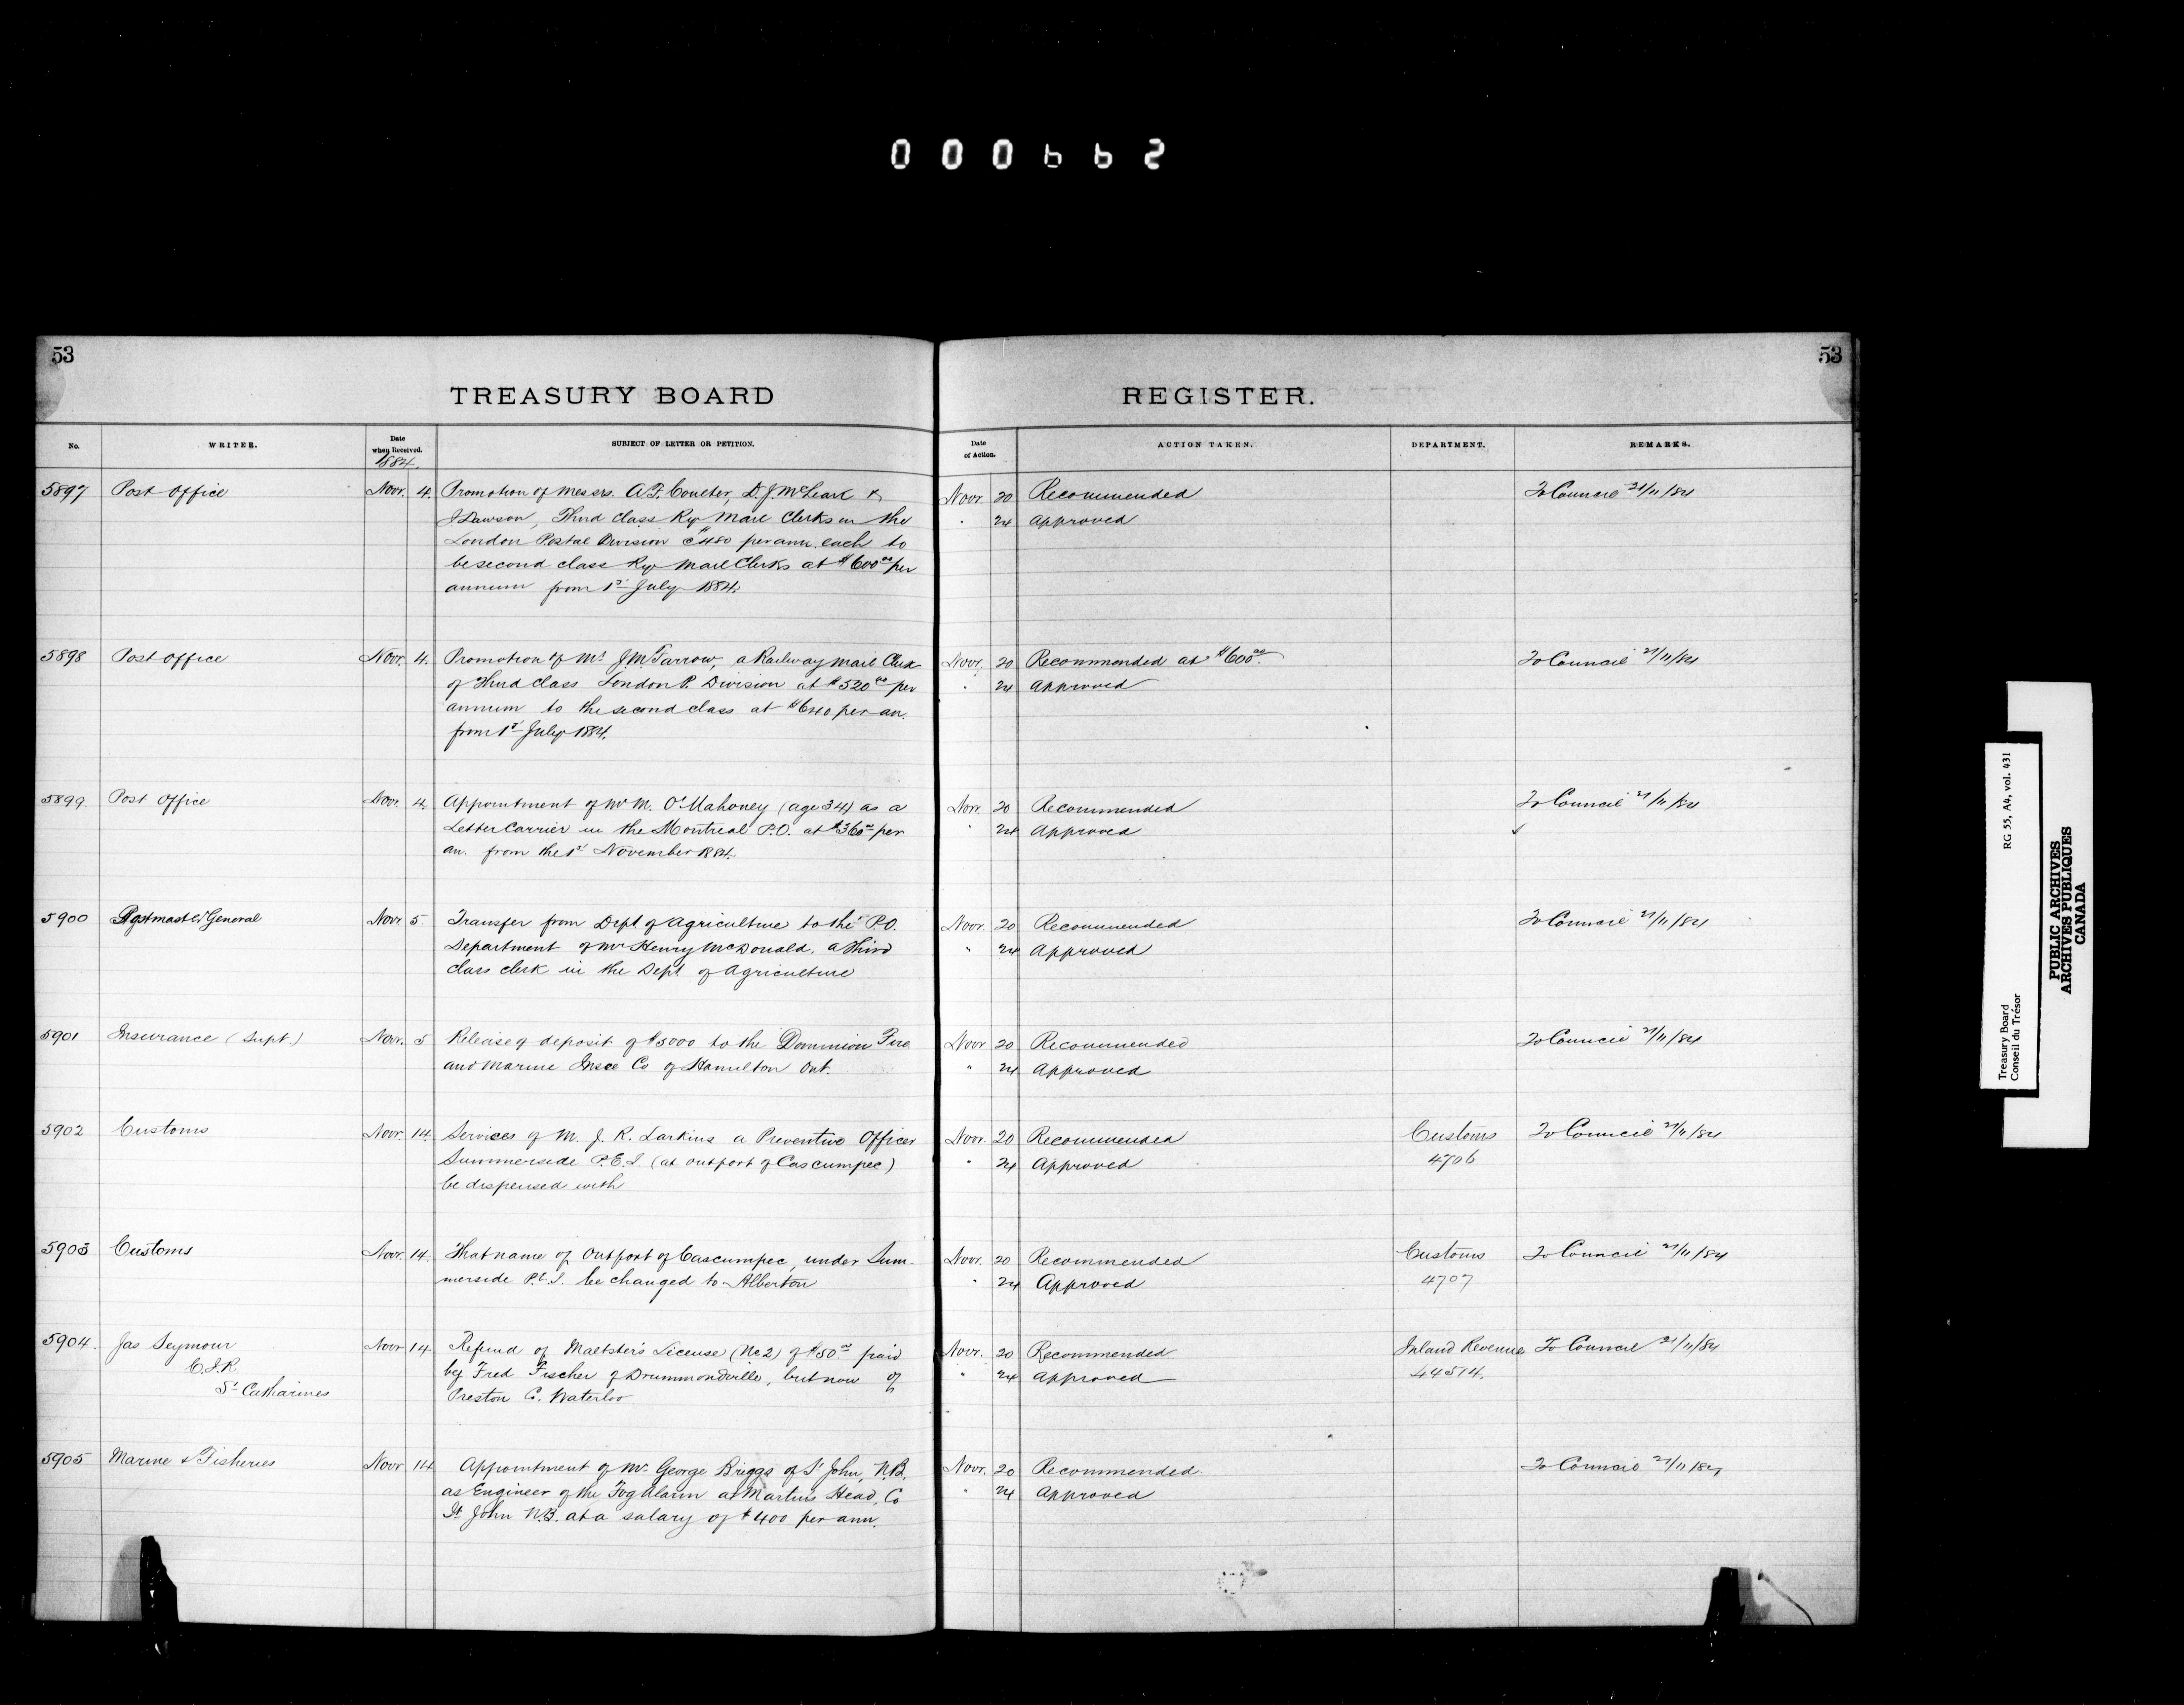 000662
53
53
TREASURY BOARD
REGISTER.
No.
WRITER.
Date
when Received.
1884.
SUBJECT OF LETTER OR PETITION.
Date
of Action.
ACTION TAKEN.
DEPARTMENT.
REMARKS.
5897 Post Office Novr. 4. Promotion of Messrs. A.F. Coulter, D.J. McLean & Novr. 20 Recommended To Council 21/11/84
J. Dawson, Third class Ry Mail Clerks in the " 24 Approved
London Postal Division @ $480 per ann. each to
be second class Ry Mail Clerks at $600.00 per
annum from 1st July 1884.
5898 Post Office Novr. 4. Promotion of Mr J.M. Tarrow, a Railway Mail Clerk Novr. 20 Recommended at $600.00 To Council 21/11/84
of Third class London P. Division at $520.00 per " 24 Approved
annum to the second class at $640 per an.
from 1st July 1884.
5899. Post Office Novr. 4. Appointment of Mr M. O'Mahoney (age 34) as a Novr. 20 Recommended To Council 21/11/84
Letter Carrier in the Montreal P.O. at $360.00 per " 24 Approved
an. from the 1st November 1884.
5900 Postmaster General Novr 5. Transfer from Dept of Agriculture to the P.O. Novr. 20 Recommended To Council 21/11/84
Department of Mr Henry McDonald, a third " 24 Approved
class clerk in the Dept of Agriculture
5901 Insurance (Supt.) Novr. 5 Release of deposit of $5000 to the Dominion Fire Novr 20 Recommended To Council 21/11/84
and Marine Insce Co of Hamilton Ont. " 24 Approved
5902 Customs Novr 14. Services of M. J. R. Larkins a Preventive Officer Novr. 20 Recommended Customs To Council 21/11/84
Summerside P.E.I. (at outport of Cascumpec) " 24 Approved 4706
be dispensed with
5903 Customs Novr. 14. That name of Outport of Cascumpec, under Sum- Novr. 20 Recommended Customs To Council 21/11/84
merside P.E.I. be changed to Alberton " 24 Approved 4707
5904. Jas Seymour Novr 14 Refund of Maltster's License (No 2) of $50.00 paid Novr. 20 Recommended. Inland Revenue To Council 21/11/84
C.I.R. by Fred Fischer of Drummondville, but now of " 24 Approved 44514.
St Catharines Preston Co. Waterloo
5905 Marine & Fisheries Novr 14 Appointment of Mr George Briggs of St John, N.B. Novr. 20 Recommended. To Council 21/11/84
as Engineer of the Fog Alarm at Martins Head, Co " 24 Approved
St John N.B. at a salary of $400 per ann.
Treasury Board RG 55, A4, vol. 431
Conseil du Trésor
PUBLIC ARCHIVES
ARCHIVES PUBLIQUES
CANADA